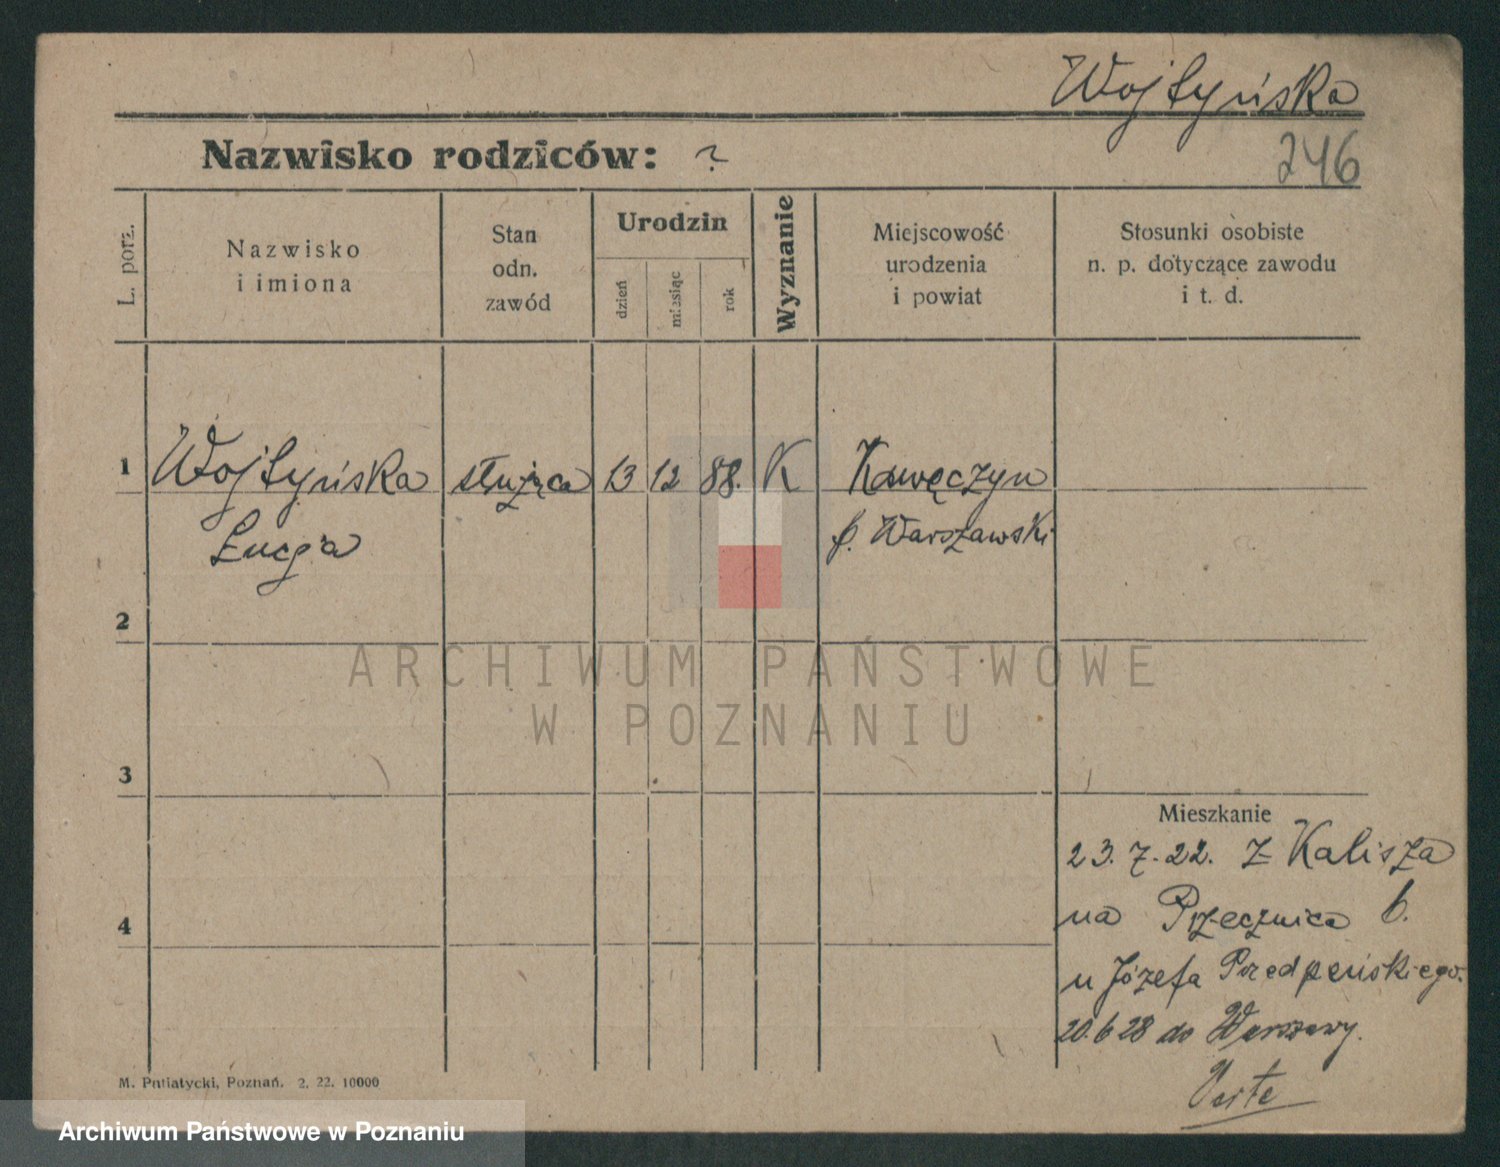 Wojtyńska
Nazwisko rodziców: ?
246
L. porz.
Nazwisko
i imiona
Stan
odn.
zawód
Urodzin
dzień
miesiąc
rok
Wyznanie
Miejscowość
urodzenia
i powiat
Stosunki osobiste
n. p. dotyczące zawodu
i t. d.
1
Wojtyńska służąca 13 12 88. K Kawęczyn
Łucja p. Warszawski
2
ARCHIWUM PAŃSTWOWE
W POZNANIU
3
Mieszkanie
23. 7. 22. z Kalisza
na Przecznica 6.
4
u Józefa
20. 6 28 do Warszawy.
Verte
M. Putiatycki, Poznań. 2. 22. 10000
Archiwum Państwowe w Poznaniu